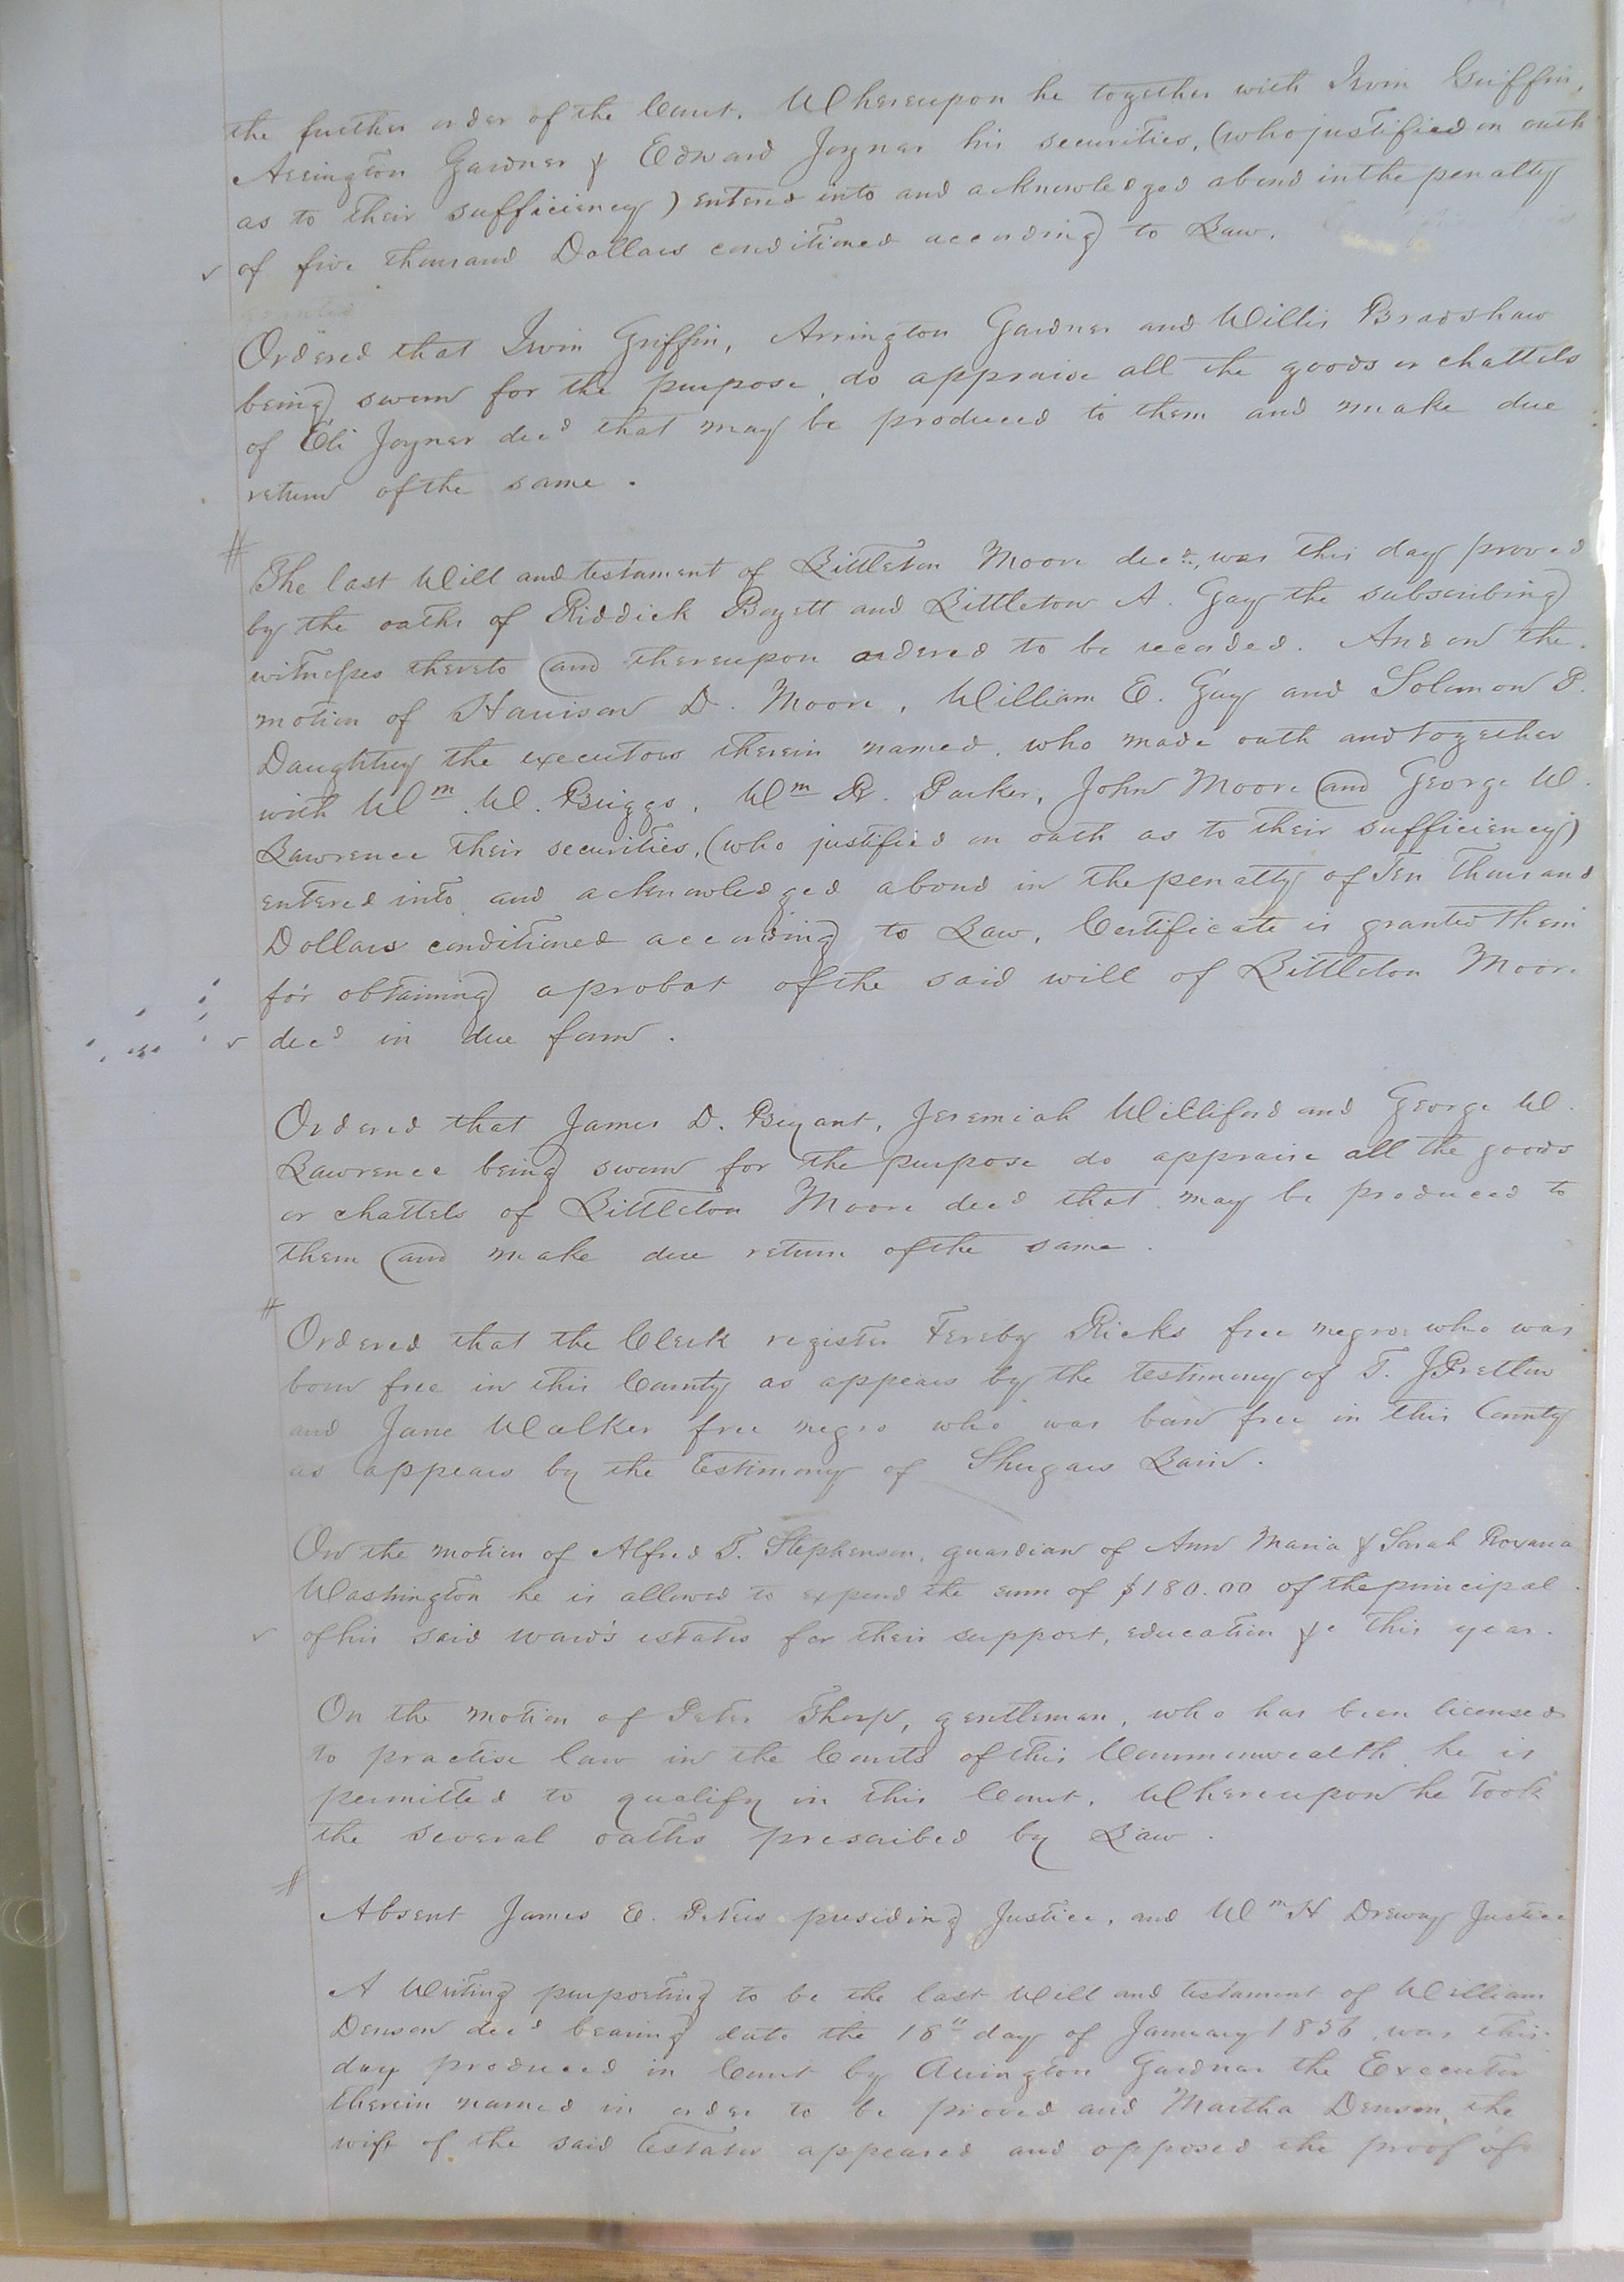 the further order of the Court. Whereupon he together with Irvin Griffin,
Arrington Gardner & Edward Joyner his securities, (who justified on oath
as to their sufficiency) entered into and acknowledged a bond in the penalty
of five thousand Dollars conditioned according to Law.
Ordered that Irvin Griffin, Arrington Gardner and Willis Bradshaw
being sworn for the purpose, do appraise all the goods or chattels
of Eli Joyner decd that may be produced to them and make due
return of the same.
The last Will and testament of Littleton Moore decd, was this day proved
by the oaths of Riddick Boyett and Littleton A. Gay the subscribing
witnesses thereto and thereupon ordered to be recorded. And on the
motion of Harrison D. Moore, William E. Gay and Solomon P.
Daughtrey the executors therein named, who made oath and together
with Wm. W. Briggs, Wm R. Parker, John Moore and George W.
Lawrence their securities, (who justified on oath as to their sufficiency)
entered into and acknowledged a bond in the penalty of Ten Thousand
Dollars conditioned according to Law, Certificate is granted them
for obtaining a probat of the said will of Littleton Moore
decd in due form.
Ordered that James D. Bryant, Jeremiah Williford and George W.
Lawrence being sworn for the purpose do appraise all the goods
or chattels of Littleton Moore decd that may be produced to
them and make due return of the same.
Ordered that the Clerk register Fereby Ricks free negroe who was
born free in this County as appears by the testimony of T. J Pretlow
and Jane Walker free negro who was born free in this County
as appears by the testimony of Shugars Lain.
On the motion of Alfred T. Stephenson, guardian of Ann Maria & Sarah Roxana
Washington he is allowed to expend the sum of $180.00 of the principal
of his said ward's estates for their support, education &c this year.
On the motion of Peter Thorp, gentleman, who has been licensed
to practise law in the Courts of this Commonwealth, he is
permitted to qualify in this Court. Whereupon he took
the several oaths prescribed by Law.
Absent James E. Peters presiding Justice, and Wm H Drewry Justice
A Writing purporting to be the last Will and testament of William
Denson decd bearing date the 18th day of January 1856, was this
day produced in Court by Arrington Gardner the Executor
therein named in order to be proved and Martha Denson, the
wife of the said testator appeared and opposed the proof of